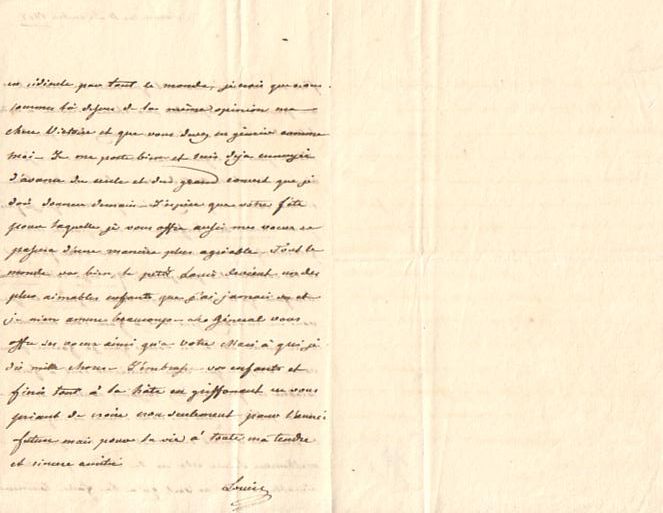 en ridicule par tout le monde, je crois que nous
sommes là dessus de la même opinion ma
chere Victoire et que vous en comme
moi - Je me porte bien et suis deja ennuyée
d'avance du cercle et du grand couvert que je
dois donner demain - J'espère que votre fête
pour laquelle je vous offre aussi mes voeux se
passera d'une manière plus agréable. Tout le
monde va bien, le petit Louis devient un des
plus aimables enfants que j'ai jamais vu et
je m'en amuse beaucoup Général vous
offre ses voeux ainsi qu'a votre Mari à qui je
dis mille choses - J'embrasse vos enfants et
finis tout à la hâte en griffonant en vous
priant de croire non seulement pour l'année
future mais pour la vie à toute ma tendre
et sincere amitié
Louise